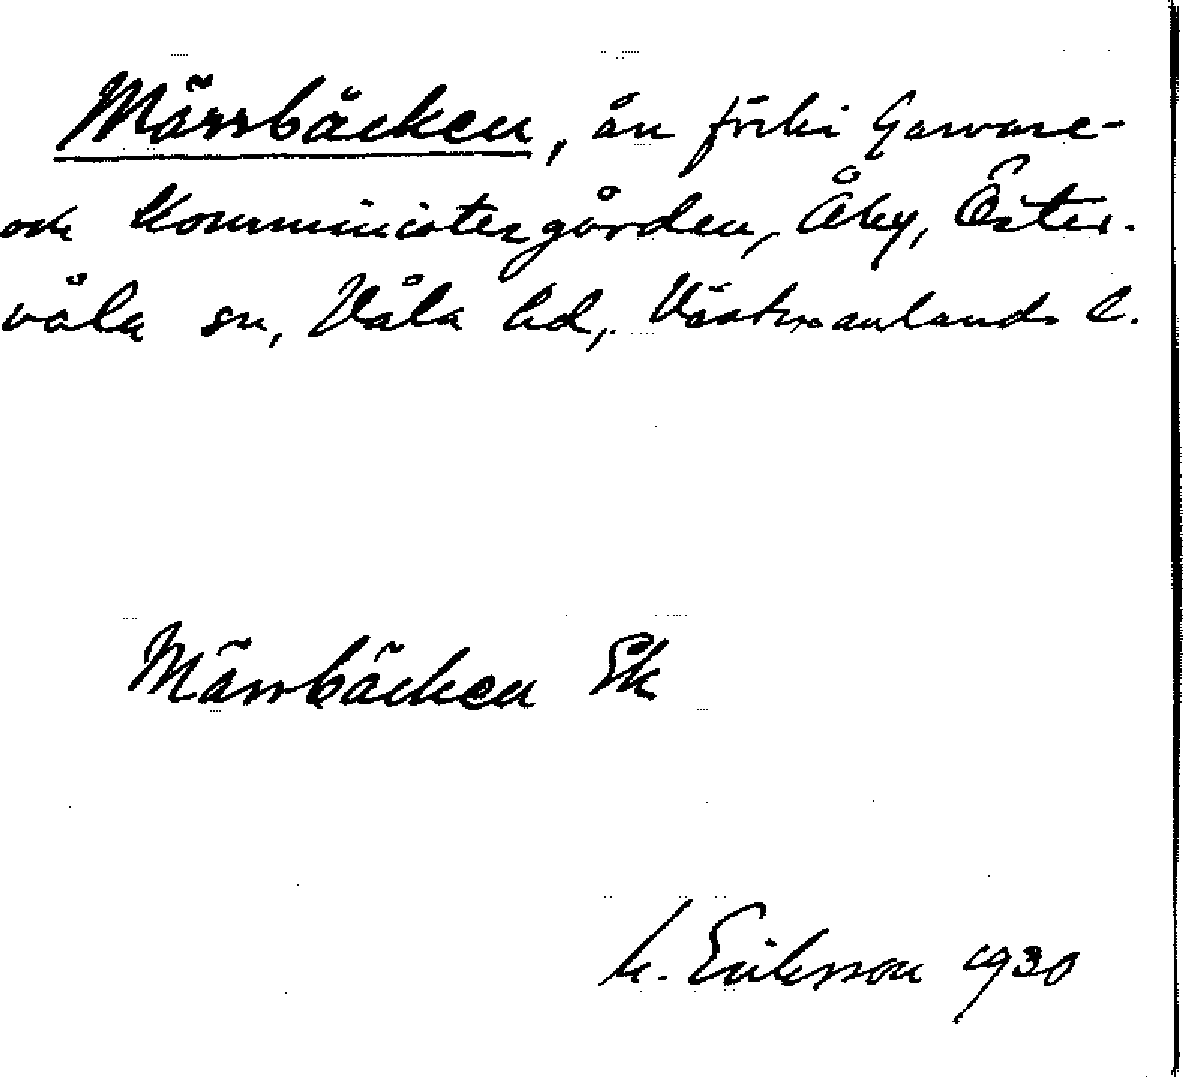 Märrbäcken, ån förbi Garvare-
och Komministergården, Åby, Öster-
våla sn, Våla hd, Västmanlands l.
Märrbäcken Ek
M. Eriksson 1930